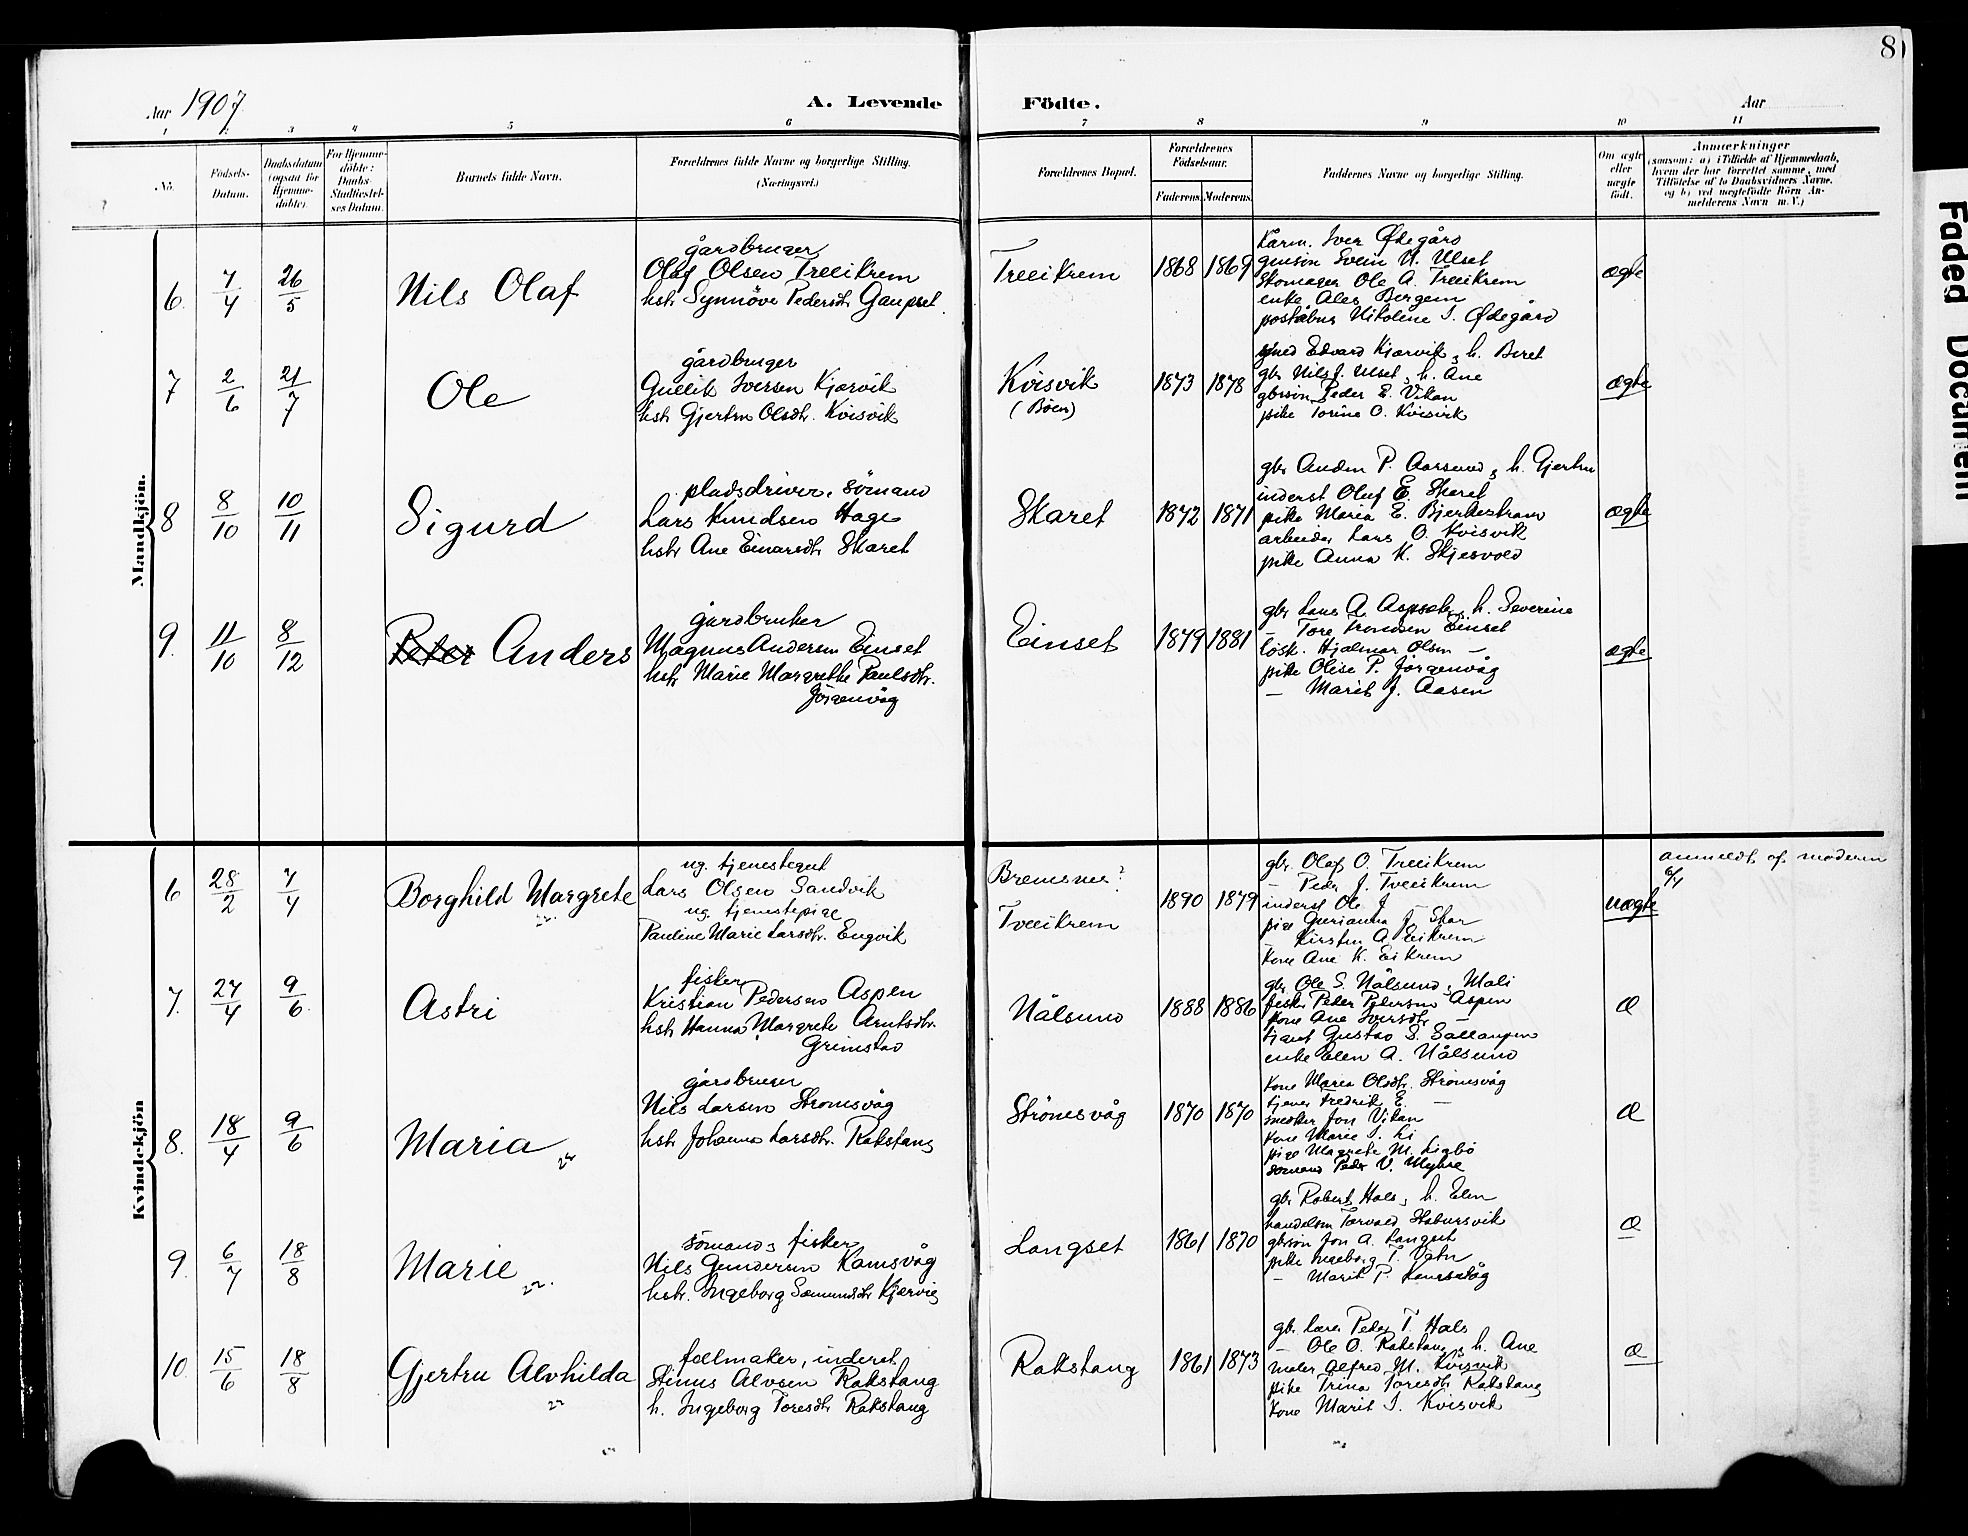 8
Aar 1907.
A. Levende Födte.
Aar
1 2 3 4 5 6 7 8 9 10 11
No.
Födsels-Datum.
Daabsdatum (ogsaa for Hjemme-döbte).
For Hjemme-döbte: Daabs-Stadfæstel-ses Datum.
Barnets fulde Navn.
Forældrenes fulde Navne og borgerlige Stilling.
(Næringsvei.)
Forældrenes Bopæl.
Forældrenes Födselsaar.
Faderens. Moderens.
Faddernes Navne og borgerlige Stilling.
Om ægte eller uægte födt.
Anmærkninger
(saasom: a) i Tilfælde af Hjemmedaab,
hvem der har forrettet samme, med
Tilföielse af to Daabsvidners Navne.
og b) ved uægtefödte Börn An-
melderens Navn m. V.)
Mandkjön.
6. 7/4 26/5 Nils Olaf
gårdbruger
Olaf Olsen Tveeikrem
hstr Synnöve Pedersdtr Gaupset.
Tveeikrem 1868 1869
Karm. Iver Ødegård
gmsön Svein N. Ulset
Skomager Ole A. Tveeikrem
enke Ales Bergem
poståbner Nikoline I. Ødegård
ægte
7 2/6 21/7 Ole
gårdbruger
Gullik Iversen Kjørvik
hstr Gjertru Olsdtr. Kvisvik
Kvisvik
(Böen)
1873 1878
Edvard Kjørvik, h. Beret
gbr Nils J. Ulset, h. Ane
gbrsön Peder E. Vikan
pike Torine O. Kvisvik
ægte
8 8/10 10/11 Sigurd
pladsdriver, sömand
Lars Knudsen Hage
hstr Ane Einarsdtr Skaret
Skaret 1872 1871
gbr Anders P. Aarsund, h. Gjertru
inderst Oluf E. Skaret
pike Maria E. Bjerkestrand
arbeider Lars O. Kvisvik
pike Anna K. Skjesvold
ægte
9. 11/10 8/12 Peter Anders
gårdbruker
Magnus Andersen Einset
hstr Marie Margrethe Paulsdtr.
Jörgenvåg
Einset 1879 1881
gbr Lars A. Aspset, h. Severine
— Tore Trondsen Einset
lösk. Hjalmar Olsen —
pike Olise P. Jörgenvåg
— Marit J. Aasen
ægte
Kvindekjön
6 28/2 7/4 Borghild Margrete
ug. tjenestegut
Lars Olsen Sandvik
ug. tjenestepige
Pauline Marie Larsdtr. Engvik
Bremsnes?
Tveeikrem
1890 1879
gbr. Olaf O. Tveeikrem
— Peder J. Tveeikrem
inderst Ole J. —
pige Gurianna J. Skar
— Kirsten A. Eikrem
Kone Ane K. Eikrem
uægte
anmeldt af moderen
6/4
7. 27/4 9/6. Astri
fisker
Kristian Pedersen Aspen
hstr Hanna Margrete Arntsdtr.
Grimstad
Nålsund 1888 1886
gbr Ole S. Nålsund, Mali
fisker Peder Pedersen Aspen
Kone Ane Iversdtr —
tjgut Gustav S.
enke Elen A. Nålsund
Æ
8. 18/4 9/6 Maria
gårdbruger
Nils Larsen Strömsvåg
hstr Johanna Larsdtr. Rakstang
Strömsvåg 1870 1870
Kone Maren Olsdtr. Strömsvåg
tjener Fredrik E. —
snedker Jon Vikan
Kone Marie I. Li
pige Magrete M. Ligbö
sömand Peder V. Myhre
Æ
9. 6/7 18/8 Marie
sömand, fisker
Nils Gundersen Kamsvåg
hstr. Ingeborg Sæmundsdtr Kjørvig
Langset 1861 1870
gbr Robert Hals, h. Elen
handelsm Torvald Stabursvik
gbrsön Jon A. Langset
pike Ingeborg T. Vatn
— Marit P. Kamsvåg
Æ
10. 15/6 18/8 Gjertru Alvhilda
fellmaker, inderst
Stinus Alvsen Rakstang
h. Ingeborg Toresdtr Rakstang
Rakstang 1861 1873
gbr. Lars Peder T. Hals
— Ole O. Rakstang, h. Ane
maler Alfred M. Kvisvik
pike Trina Toresdtr Rakstang
Kone Marit I. Kvisvik
Æ
Faded Document